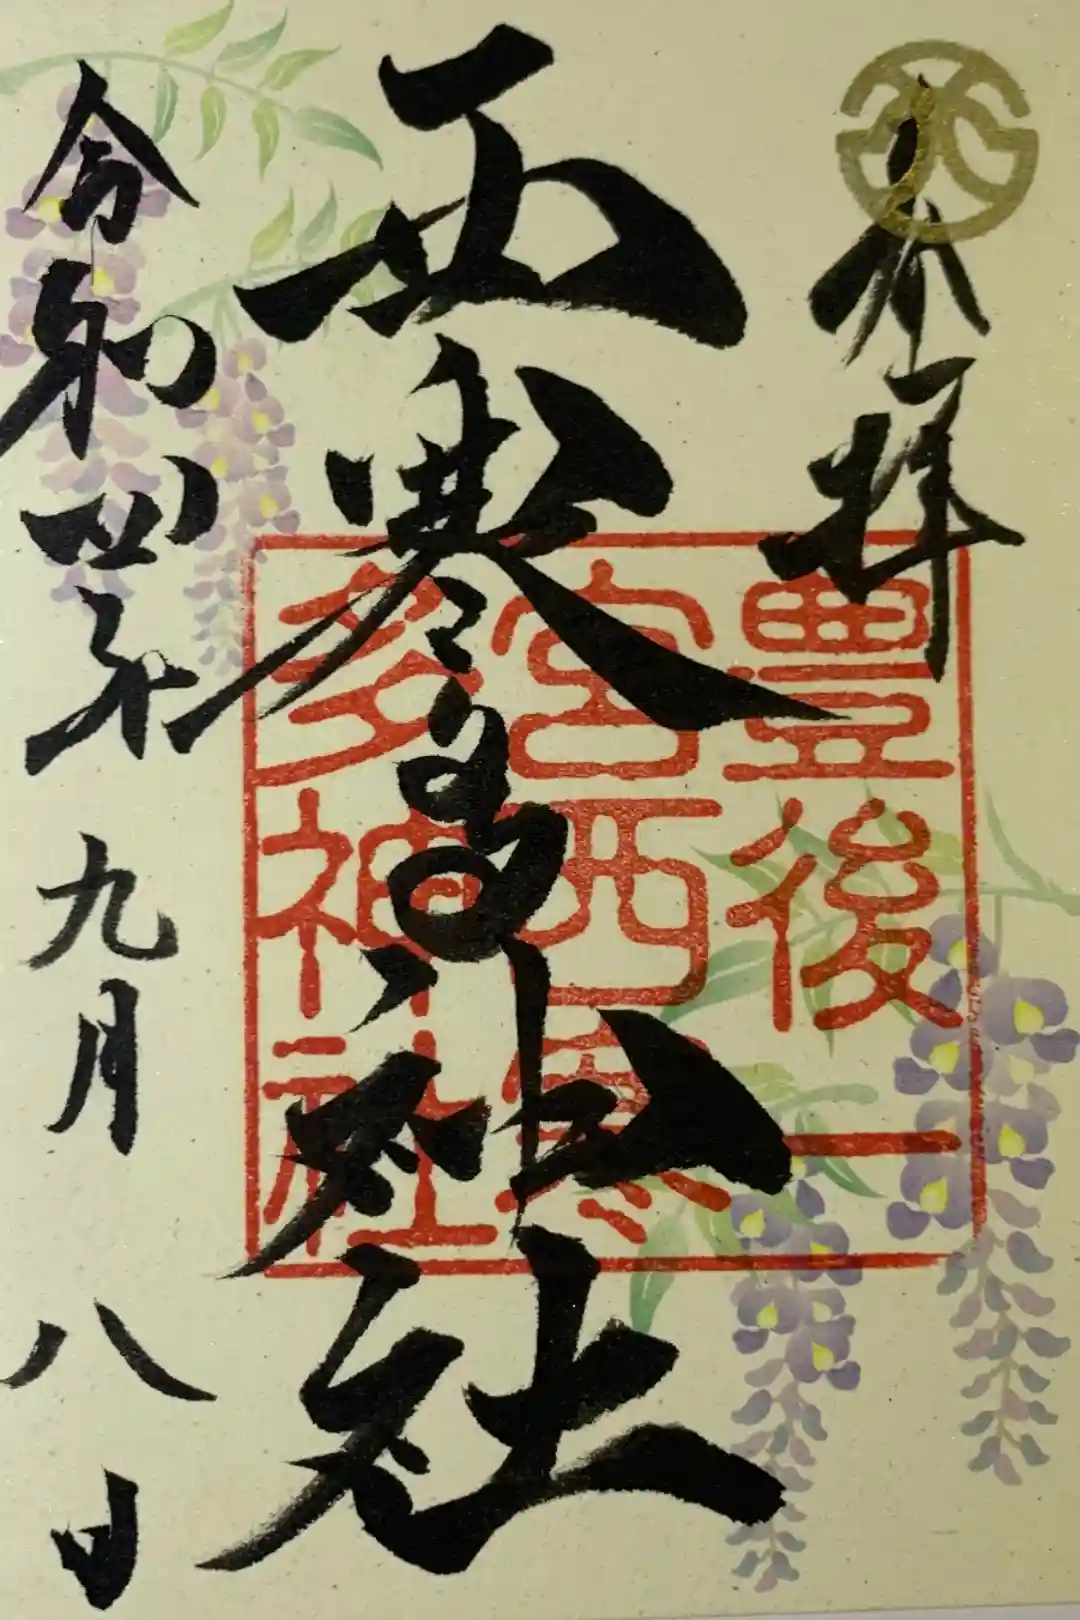 奉拝
西寒多神社
豊後一
宮西寒
多神社
令和四年九月八日